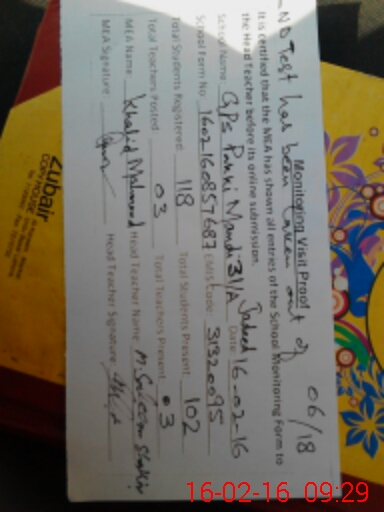 06/18
- No Test has been taken out of
Monitoring Visit Proof
It is certified that the MEA has shown all entries of the School Monitoring Form to
the Head Teacher before its online submission.
School Name: GPS Pakki Mandi 31/A Date: 16-02-16
School Form No: 1602160857687 EMIS Code: 31320095
Total Students Registered: 118 Total Students Present: 102
Total Teachers Posted: 03 Total Teachers Present: 03
MEA Name: Khalid Mahmood Head Teacher Name: M. Saleem Shakir
MEA Signature: Head Teacher Signature:
Zubair
COPY HOUSE
16-02-16 09:29